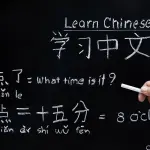 Learn Chinese
学习中文
点了 = What time is it?
ǎn le
点 = 十五分 = 8 o'cl
iǎn ár shí wǔ fēn